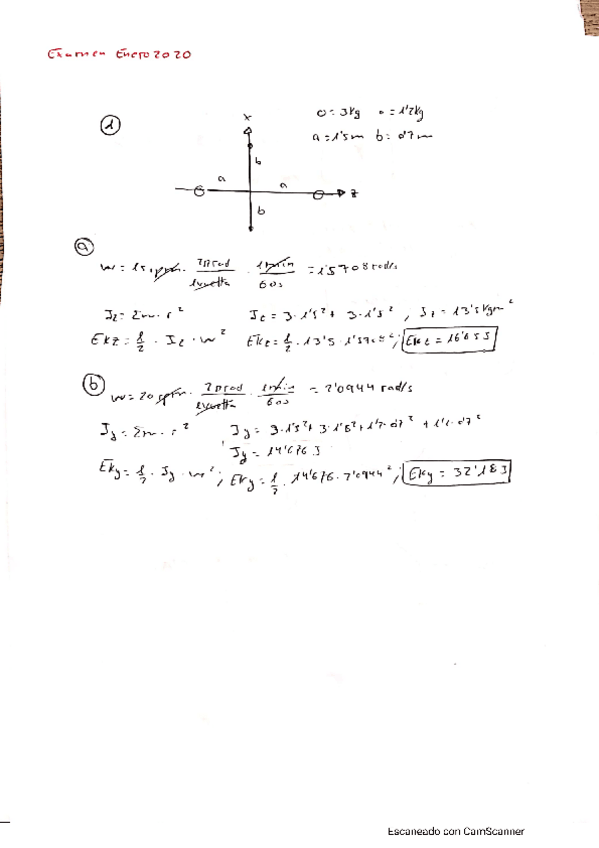 Examen Enero 2020
① O = 3kg o = 1'2kg
a = 1'5m b = 0'7m
x
b
a a z
b
ⓐ
w = 15 rpm · 2π rad / 1 vuelta · 1 min / 60 s = 1'5708 rad/s
Iz = Σm · r² Iz = 3·1'5² + 3·1'5² , Iz = 13'5 kgm²
Ekz = 1/2 · Iz · w² Ekz = 1/2 · 13'5 · 1'5708² ; Ekz = 16'655 J
ⓑ w = 20 rpm · 2π rad / 1 vuelta · 1 min / 60 s = 2'0944 rad/s
Iy = Σm · r² Iy = 3·1'5² + 3·1'5² + 1'2·0'7² + 1'2·0'7²
Iy = 14'676
Eky = 1/2 · Iy · w² ; Eky = 1/2 · 14'676 · 2'0944² ; Eky = 32'18 J
Escaneado con CamScanner